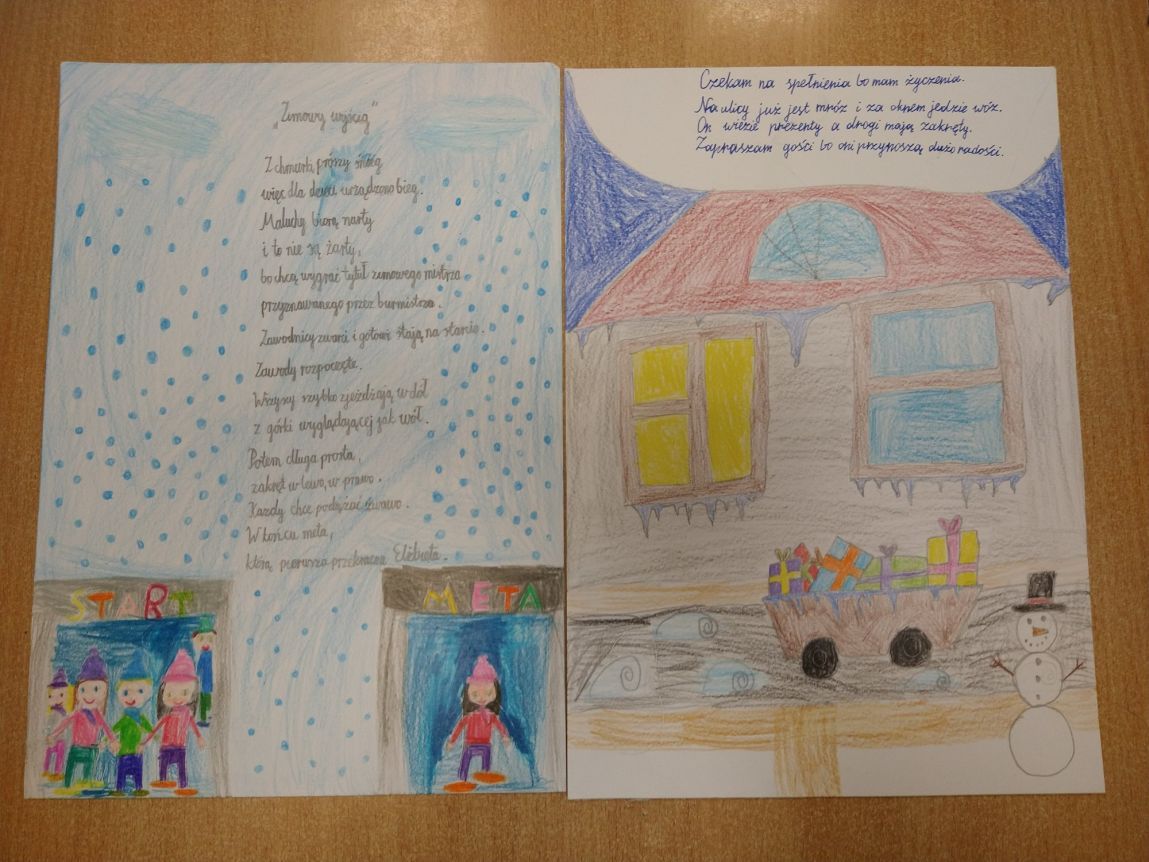 „Zimowy wyścig”
Z chmurki prószy śnieg
więc dla dzieci urządzono bieg.
Maluchy biorą narty
i to nie są żarty,
bo chcą wygrać tytuł zimowego mistrza
przyznawanego przez burmistrza.
Zawodnicy zwarci i gotowi stają na starcie.
Zawody rozpoczęte.
Wszyscy szybko zjeżdżają w dół
z górki wyglądającej jak wół.
Potem długa prosta,
zakręt w lewo, w prawo.
Każdy chce podążać żwawo.
W końcu meta,
którą pierwsza przekracza Elżbieta.
START
META
Czekam na spełnienia bo mam życzenia.
Na ulicy już jest mróz i za oknem jedzie wóz.
On wiezie prezenty a drogi mają zakręty.
Zapraszam gości bo oni przynoszą dużo radości.